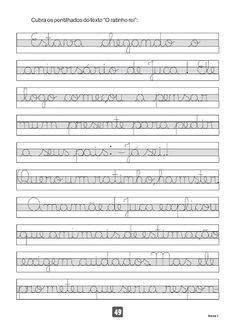 Cubra os pontilhados do texto "O ratinho roi":
Estava chegando o
aniversário de Juca! Ele
logo começou a pensar
num presente para pedir
a seus pais: - Já sei!
Quero um ratinho hamster.
A mamãe de Juca explicou
que animais de estimação
exigem cuidados. Mas ele
prometeu que seria respon-
49